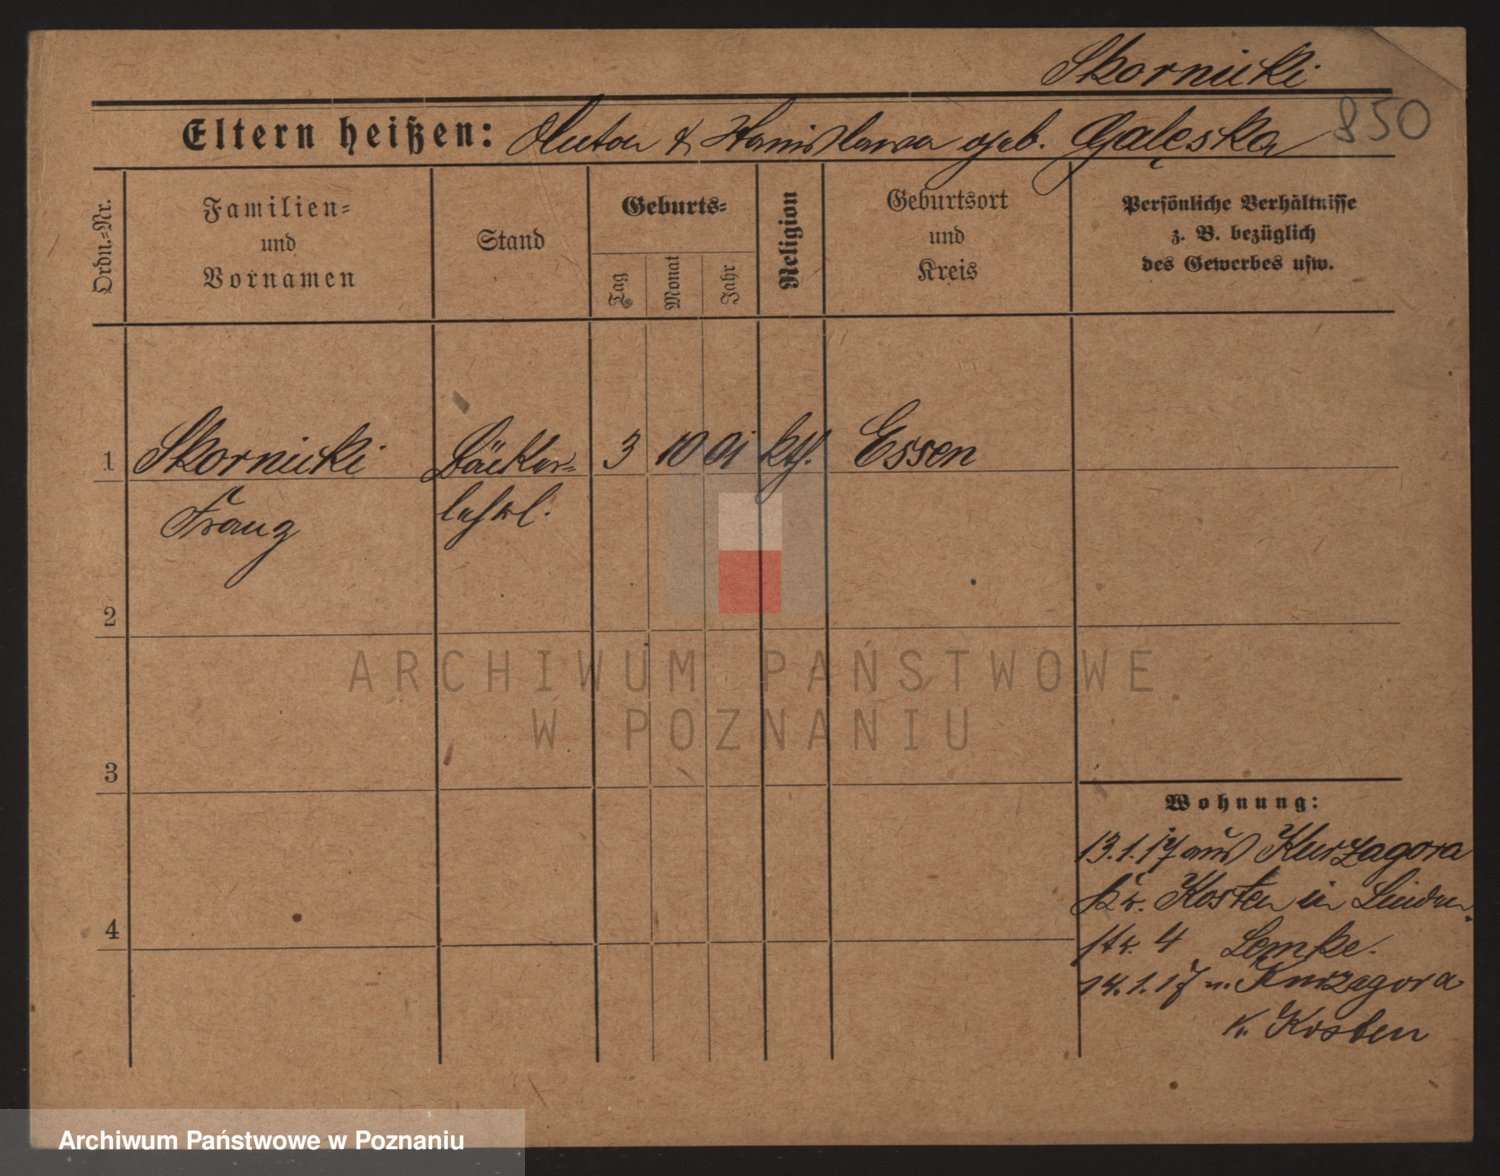 Skornicki
850
Eltern heißen: Anton & Stanislawa geb. Gałęska
Ordn.=Nr.
Familien=
und
Vornamen
Stand
Geburts=
Tag
Monat
Jahr
Religion
Geburtsort
und
Kreis
Persönliche Verhältnisse
z. B. bezüglich
des Gewerbes usw.
1 Skornicki Bäcker= 3 10 01 kth. Essen
Franz lehrl.
2
3
4
Wohnung:
13.1.17 aus Kurzagora
Kr. Kosten in Linden
str. 4 Lemke.
14.1.17 n. Kurzagora
K. Kosten
ARCHIWUM PAŃSTWOWE
W POZNANIU
Archiwum Państwowe w Poznaniu